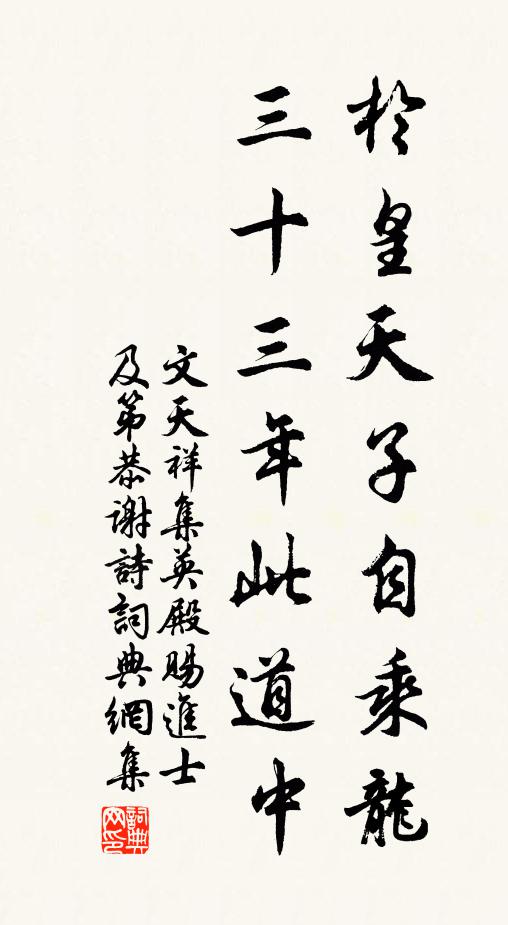 於皇天子自乘龍
三十三年此道中
文天祥集英殿賜進士
及第恭謝詩詞典網集
詞典網印